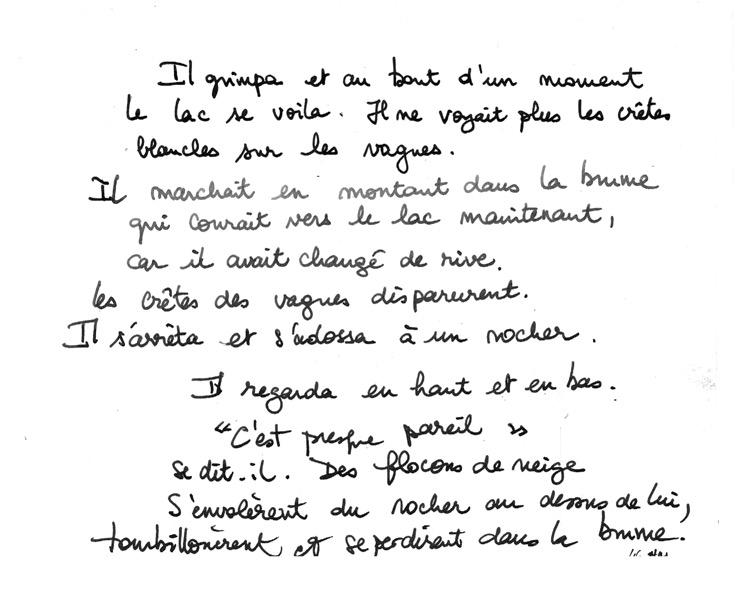 Il grimpa et au bout d'un moment
le lac se voila. Il ne voyait plus les crêtes
blanches sur les vagues.
Il marchait en montant dans la brume
qui courait vers le lac maintenant,
car il avait changé de rive.
les crêtes des vagues disparurent.
Il s'arrêta et s'adossa à un rocher.
Il regarda en haut et en bas.
"C'est presque pareil »
se dit-il. Des flocons de neige
S'envolèrent du rocher au dessus de lui,
tourbillonèrent et se perdirent dans la brume.